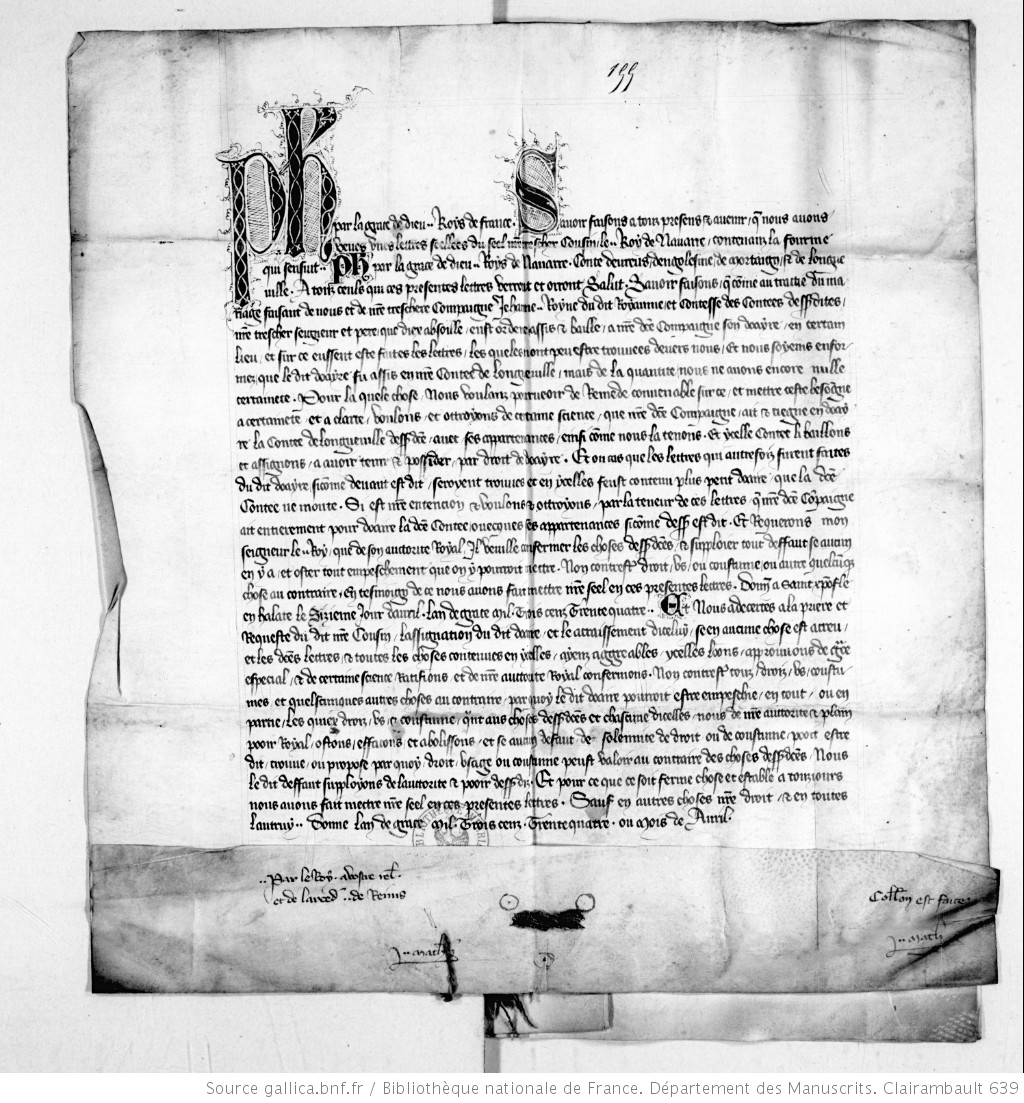 199
Ph par la grace de dieu .. Roys de france . Savoir faisons a touz presens & avenir / q nous avons
veues unes lettres seellees du seel nre trescher Cousin / le .. Roy de Navarre / contenanz la fourme
qui sensuit .. Ph par la grace de dieu .. Roys de Navarre . Conte devreus / dengolesme / de mortaign / & de longue
ville . A touz ceuls qui ces presentes lettres verront et orront Salut . Savoir faisons / q cōme au traitie du ma
riage faisant de nous et de nre treschere Compaigne Jehanne .. Royne du dit Royaume / et Contesse des Contees dessdites /
nre trescher seigneur et pere / que diex absoille / eust ordene assis & baille / a nre dce Compaigne son doayre / en certain
lieu / et sur ce eussent este faites les lettres / les queles nont peu estre trouvees devers nous / Et nous soyems enfor
mez / que le dit doayre fu assis en nre Contee de Longueville / mais de la quantite / nous ne avons encore nulle
certainete . Pour la quele chose / Nous voulanz pourveoir de Remede convenable sur ce / et mettre ceste besoigne
a certainete / et a clarte / voulons / et ottroyons de certaine science / que nre dce Compaigne / ait & tiegne en doay
re la Contee de Longueville dessdce / avec ses appartenances / einsi cōme nous la tenons . Et ycelle Contee li baillons
et assignons / a avoir tenir & possider / par droit de doayre . Et ou cas que les lettres qui autresfoiz furent faites
du dit doayre sicōme devant est dit / seroyent trouvees et en ycelles feust contenu plus petit doaire / que la dce
Contee ne monte . Si est nre entencion & voulons & ottroyons / par la teneur de ces lettres / q nre dce Cōpaigne
ait entierement pour doaire la dce Contee / ovecques ses appartenances sicōme dess est dit . Et Requerons mon
seigneur le .. Roy / que de son auctorite Royal / Il veuille confermer les choses dessdces / & supploier tout deffaut se aucun
en y a / et oster tout empeschement que on y pourroit mettre . Non contrest droit / us / ou coustume / ou autre quelcunq
chose au contraire . En tesmoing de ce nous avons fait mettre nre seel en ces presentes lettres . Donn a Saint xpofle
en halate le Sizieme Jour davril . Lan de grace Mil . Trois cenz Trente quatre .. Et Nous adecertes a la priere et
Requeste du dit nre Cousin / lassignation du dit doaire / et le accroissement diceluy / se en aucune chose est acreu /
et les dces lettres / & toutes les choses contenues en ycelles / ayem aggreables / ycelles loons / approuvons de gce
especial / & de certaine science Ratifions / et de nre auctorite Royal confermons . Non contrest touz / droiz / us / coustu
mes et quelscunques autres choses au contraire / par quoy le dit doaire pourroit estre empesche / en tout / ou en
partie / les quiex droiz / us & coustume / qnt aus choses dessdces et chascune dicelles / nous de nre auctorite & plain
pooir Royal / ostons / effacons et abolissons / et se aucun defaut de solemnite de droit ou de coustume / pooit estre
dit / trouve / ou propose par quoy / droit / usage ou coustume peust valoir au contraire des choses dessdces / Nous
le dit deffaut supployons de lauctorite & pooir dessdiz . Et pour ce que ce soit ferme chose et estable a touzjours
nous avons fait mettre nre seel en ces presentes lettres . Sauf en autres choses nre droit / & en toutes
lautruy .. Donne Lan de grace Mil . Trois cenz . Trente quatre . ou Mois de Avril .
.. Par le Roy .
et de larced .. de Reins
Collon est faite
J .. Math
J .. Math
Source gallica.bnf.fr / Bibliothèque nationale de France. Département des Manuscrits. Clairambault 639